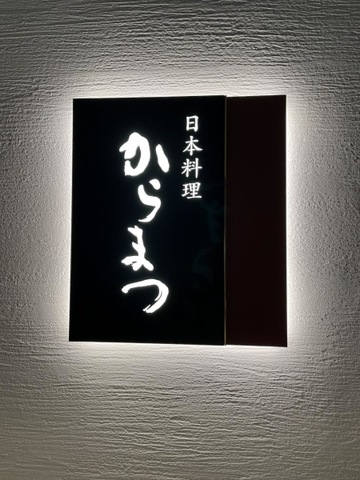 日本料理
からまつ